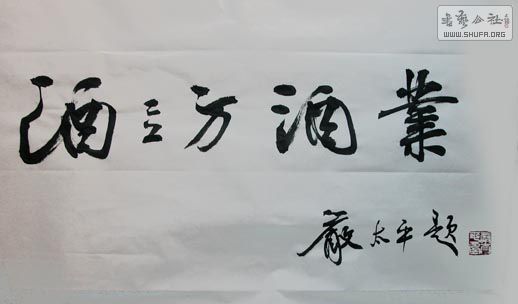 書藝公社
WWW.SHUFA.ORG
酒立方酒業
嚴太平題